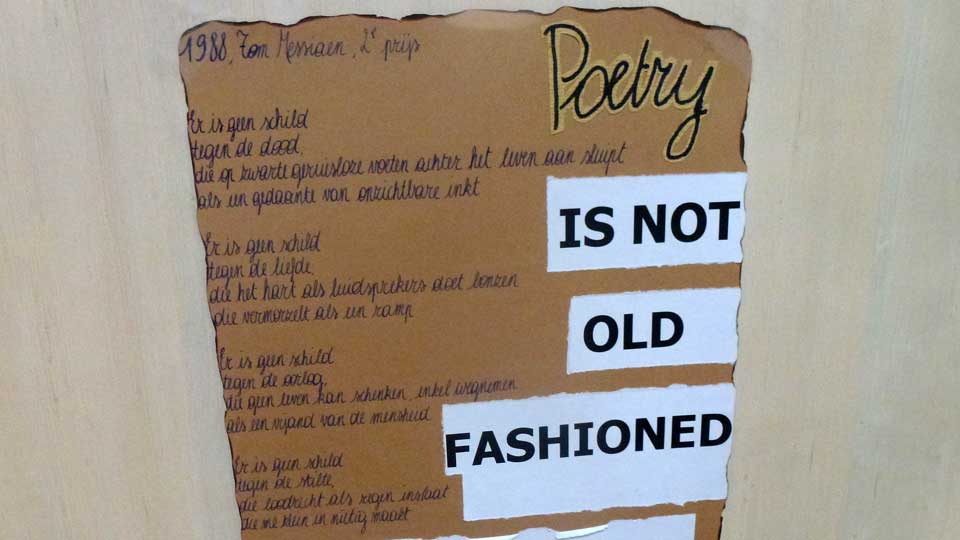 1988, Tom Messiaen, 2e prijs
Poetry
IS NOT
OLD
FASHIONED
Er is geen schild
tegen de dood,
die op zwarte geruisloze voeten achter het leven aan sluipt
als een gedaante van onzichtbare inkt
Er is geen schild
tegen de liefde,
die het hart als luidsprekers doet bonzen
die vermorzelt als een ramp
Er is geen schild
tegen de oorlog,
die geen leven kan schenken, enkel wegnemen
als een vijand van de mensheid
Er is geen schild
tegen de stilte,
die loodrecht als regen inslaat
die me klein en nietig maakt